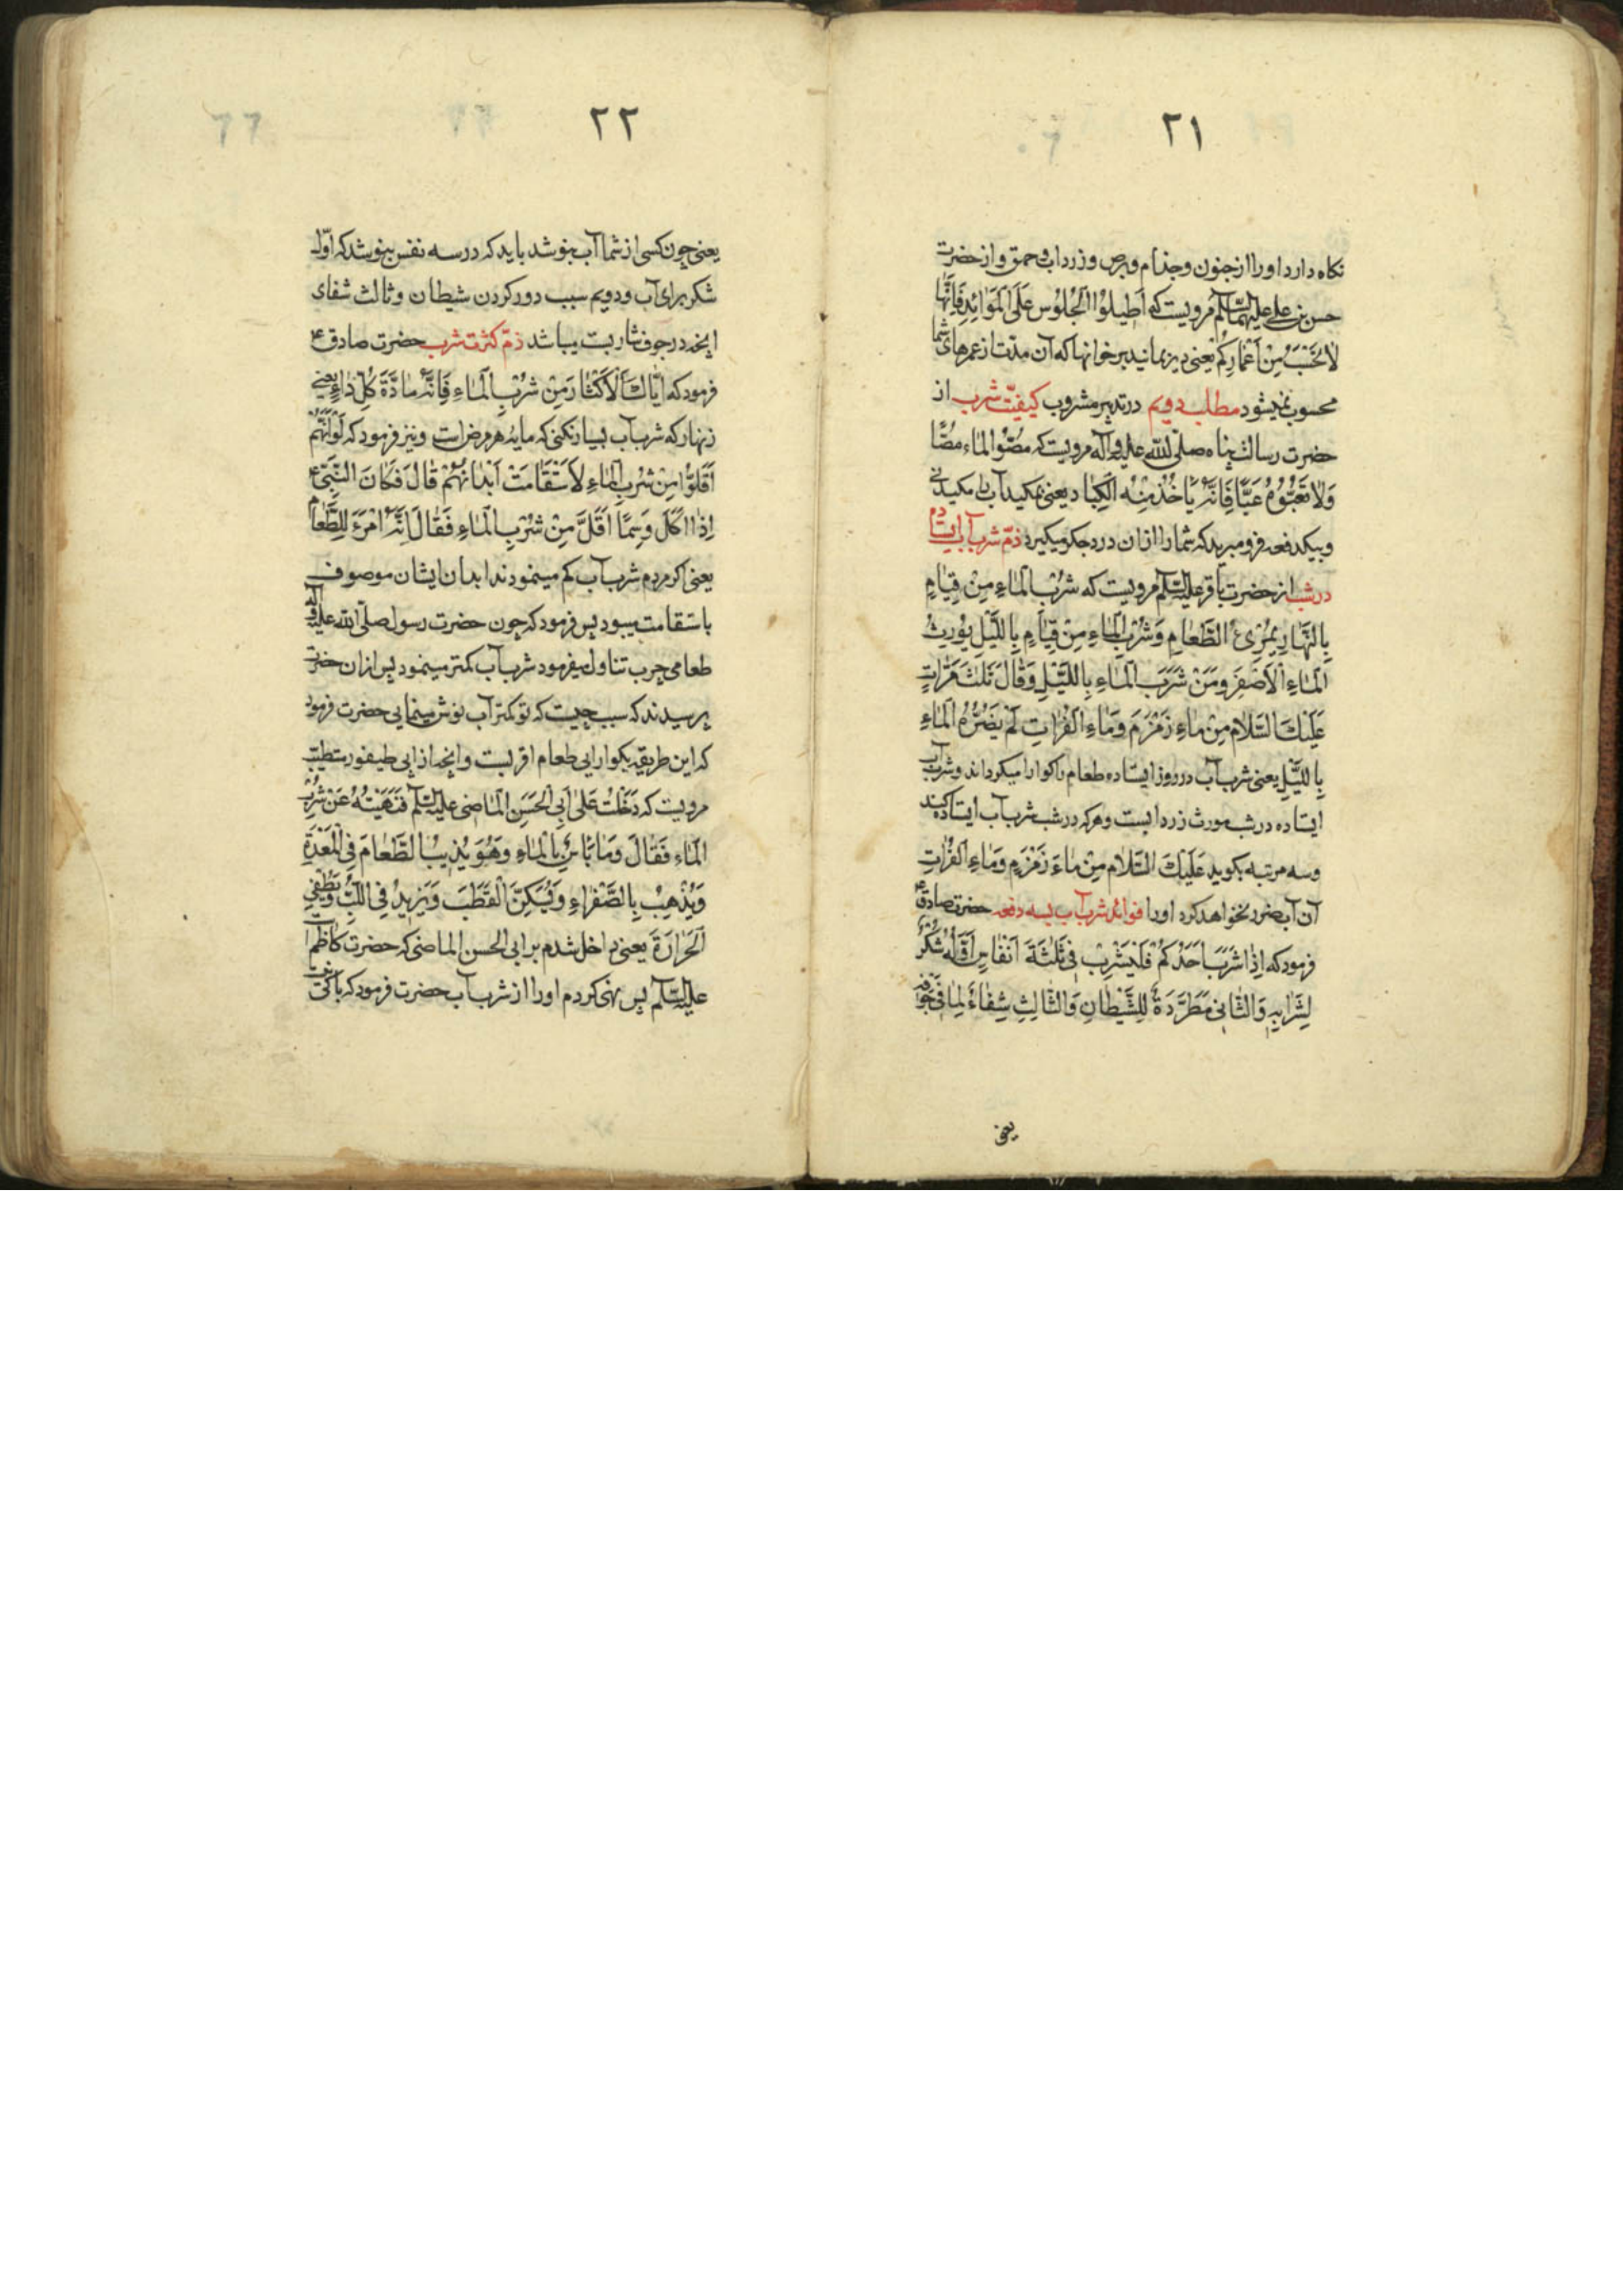 ٢١
نگاه دارد او را از جنون و جذام و برص و زرداب و حمق و از حضرت
حسن بن علی علیهما السلام مرویست که اَطیلُوُا الْجُلُوسَ عَلَی الْمَوائِدِ فَاِنَّها
لا تُحْسَبُ مِنْ اَعْمارِکُمْ یعنی دیر بمانید بر خوانها که آن مدت از عمرهای شما
محسوب نمیشود مطلب دویم در تدبیر مشروب کیفیّت شرب از
حضرت رسالت پناه صلّی اللّه علیه و آله مرویست که مصّوُا الماء مصًّا
وَلا تَعُبُّوُهُ عَبًّا فَاِنَّهُ یَاْخُذُ مِنْهُ الکُِباد یعنی بمکید آب را مکیدنی
و بیکدفعه فرو مبرید که شما را از ان درد جگر میگیرد ذمّ شرب آب ایستاده
در شب از حضرت باقر علیه السّلم مرویست که شُرْبُ الْماءِ مِنْ قِیامٍ
بِالنَّهارِ یُمْرِیءُ الطَّعامِ وَ شُرْبُ الْماءِ مِنْ قِیامٍ بِاللَّیْلِ یُورِثُ
الْماءِ الْاَصْفَرَ وَمَنْ شَرَبَ الْماءِ بِاللَّیْلِ وَ قالَ ثَلٰثَ مَرّاتٍ
عَلَیْكَ السَّلامُ مِنْ ماءِ زَمْزَمَ وَ ماءِ الْفُراتِ لَمْ یَضُرُّهُ الْماءِ
بِاللَّیْلِ یعنی شرب آب در روز ایستاده طعام را گوارا میگرداند و شرب آب
ایستاده در شب مورث زردابست و هر که در شب شرب آب ایستاده کند
و سه مرتبه بگوید عَلَیْكَ السَّلامُ مِنْ ماءِ زَمْزَمٍ وَ ماءِ الْفُراتِ
آن آب ضرر نخواهد کرد او را فوائد شرب آب بسه دفعه حضرت صادق ع
فرمود که اِذا شَرَبَ اَحَدُکُمْ فَلْیَشْرِبْ فی ثَلٰثَةَ اَنْفاسٍ اَوَّلُهُ شُکْرٌ
لِشَرابِهِ وَالثّانی مَطْرَدَةٌ لِلشَّیْطانِ وَالثّالِثِ شِفاءٌ لِما فی جَوْفِهِ
یعنی
٢٢
یعنی چون کسی از شما آب بنوشد باید که در سه نفس بنوشد که اوّل
شکر برای آب و دویم سبب دور کردن شیطان و ثالث شفای
آنچه در جوف شاربست میباشد ذمّ کثرت شرب حضرت صادق ع
فرمود که اِیّاكَ الْاَکْثارَ مِنْ شُرْبِ الْماءِ فَاِنَّهُ مادَّةَ کُلِّ داءٍ یعنی
زنهار که شرب آب بسیار نکنی که مایهٔ هر مرض است و نیز فرمود که لَوْ اَنَّهُمْ
اَقَلّوُا مِنْ شُرْبِ الْماءِ لَاسْتَقامَتْ اَبْدانُهُمْ قالَ فَکانَ النَّبِیّ ع
اِذا اَکَلَ دَسِمًا اَقَلَّ مِنْ شُرْبِ الْماءِ فَقالَ اِنَّهُ اَمْرَءُ لِلطَّعامِ
یعنی اگر مردم شرب آب کم مینمودند ابدان ایشان موصوف
باستقامت میبود پس فرمود که چون حضرت رسول صلّی اللّه علیه و آله
طعامی چرب تناول میفرمود شرب آب کمتر مینمود پس از ان حضرت
پرسیدند که سبب چیست که تو کمتر آب نوش مینمایی حضرت فرمود
که این طریقه بگوارایی طعام اقربست و آنچه از ابی طیفور متطبّب
مرویست که دَخَلْتُ عَلی اَبِی الْحَسَنِ الْماضی علیه السّلم فَنَهَیْتُهُ عَنْ شُرْبِ
الْماءِ فَقالَ وَما بَاْسٌ بِالْماءِ وَهُوَ یُذیبُ الطَّعامَ فِی الْمَعْدَةِ
وَیُذْهِبُ بِالصَّفْراءِ وَیُسَکِّنَ الْغَضَبَ وَیَزیدُ فِی اللُّبِّ وَیُطْفِیِ
الْحَرارَةَ یعنی داخل شدم بر ابی الحسن الماضی که حضرت کاظم است
علیه السّلم پس نهی کردم او را از شرب آب حضرت فرمود که باکی نیست